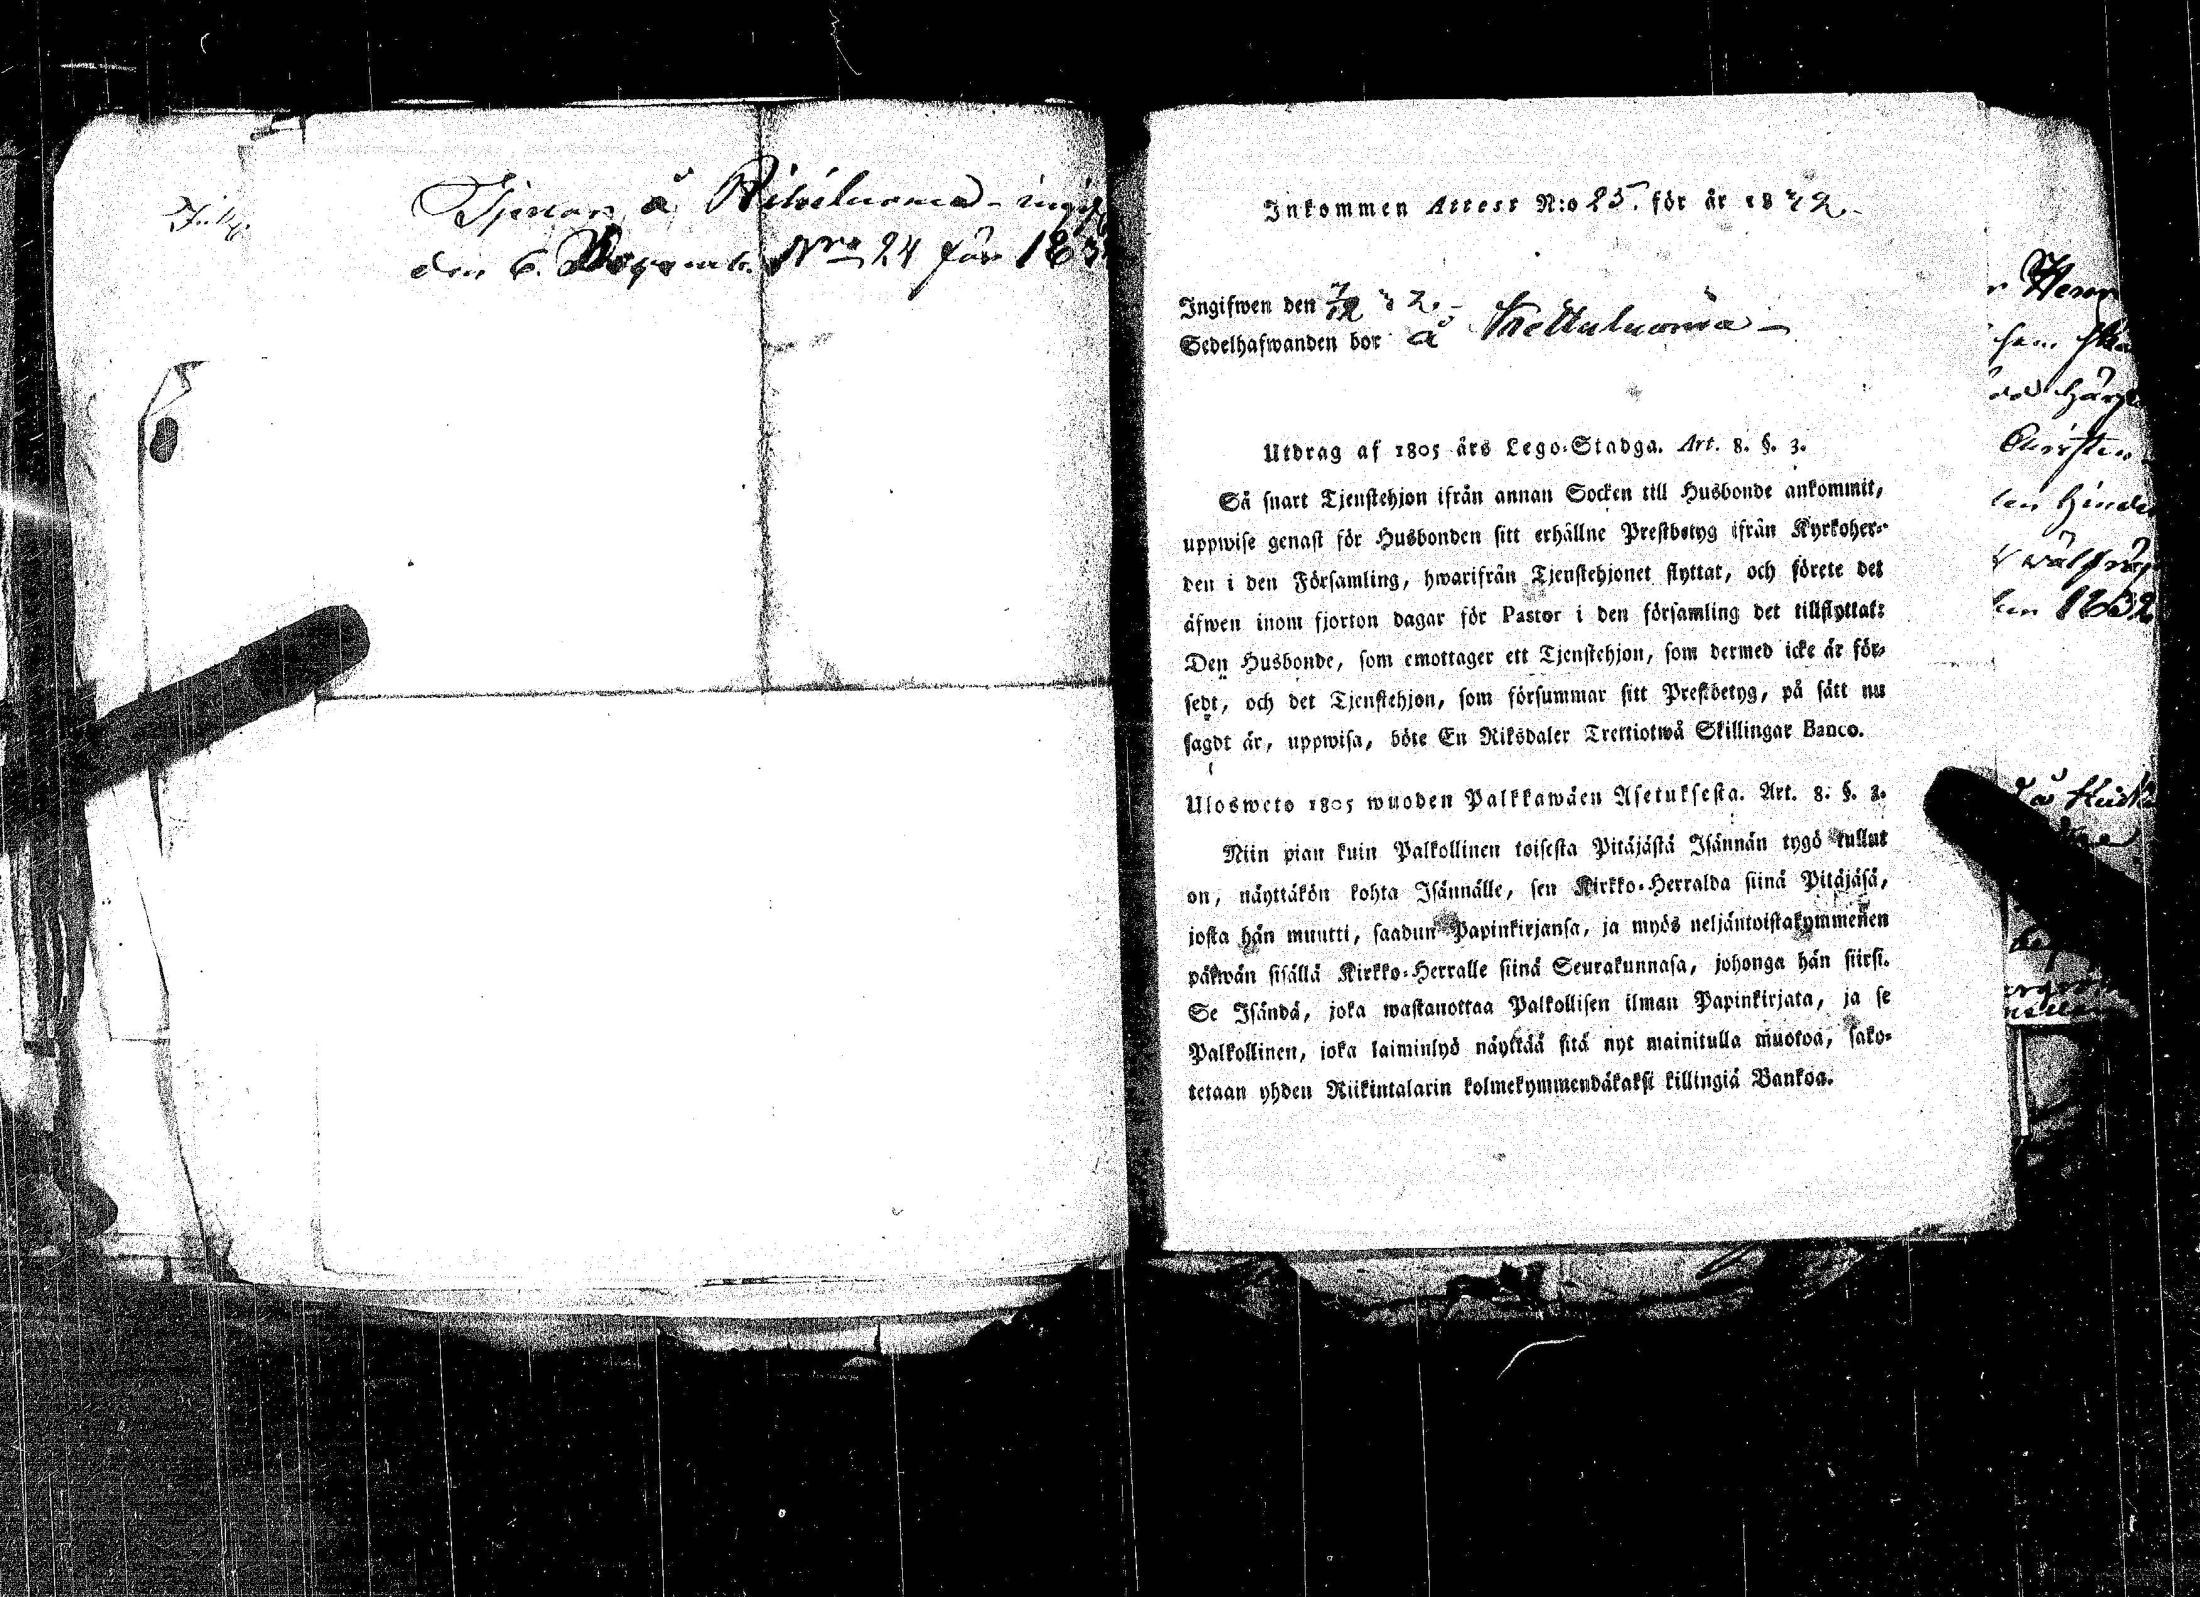 Tjenar å
den 6. Nro 24 för 183
Inkommen Attest N:o 25. för år 18
Ingifwen den
Sedelhafwanden bor å Kettuluoma
Utdrag af 1805 års Lego-Stadga. Art. 8. §. 3.
Så snart Tjenstehjon ifrån annan Socken till Husbonde ankommit,
uppwise genast för Husbonden sitt erhållne Prestbetyg ifrån Kyrkoher-
den i den Församling, hwarifrån Tjenstehjonet flyttat, och förete det
äfwen inom fjorton dagar för Pastor i den församling det tillflyttat:
Den Husbonde, som emottager ett Tjenstehjon, som dermed icke är för-
sedt, och det Tjenstehjon, som försummar sitt Prestbetyg, på sätt nu
sagdt är, uppwisa, böte En Riksdaler Trettiotwå Skillingar Banco.
Ulosweto 1805 wuoden Palkkawäen Asetuksesta. Art. 8. §. 3.
Niin pian kuin Palkollinen toisesta Pitäjästä Isännän tygö tullut
on, näyttäkön kohta Isännälle, sen Kirkko-Herralda siinä Pitäjäsä,
josta hän muutti, saadun Papinkirjansa, ja myös neljäntoistakymmenen
päiwän sisällä Kirkko-Herralle siinä Seurakunnasa, johonga hän siirsi.
Se Isändä, joka wastanottaa Palkollisen ilman Papinkirjata, ja se
Palkollinen, joka laiminlyö näyttää sitä nyt mainitulla muotoa, sako-
tetaan yhden Riikintalarin kolmekymmendäkaksi killingiä Bankoa.